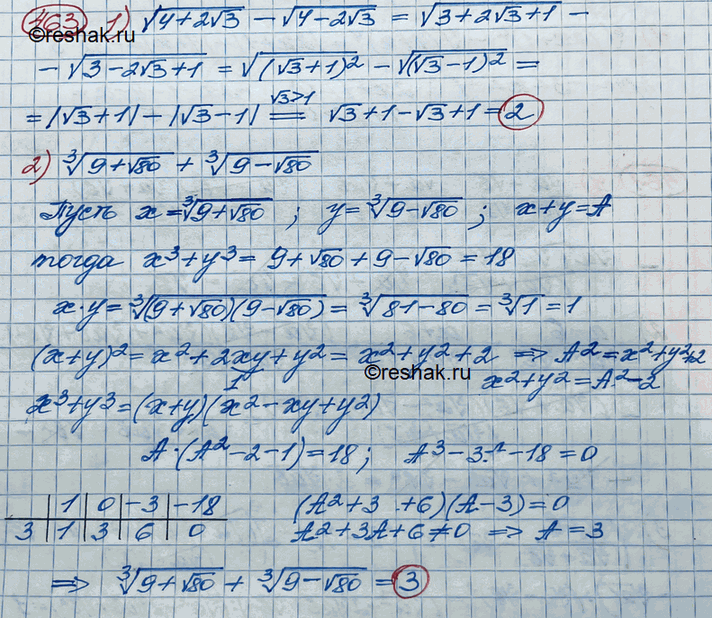 463 1) √(4+2√3) − √(4−2√3) = √(3+2√3+1) −
©reshak.ru
− √(3−2√3+1) = √((√3+1)²) − √((√3−1)²) =
= |√3+1| − |√3−1| =(√3>1)= √3+1−√3+1 = 2
2) ∛(9+√80) + ∛(9−√80)
Пусть x = ∛(9+√80) ; y = ∛(9−√80) ; x+y=A
тогда x³+y³ = 9+√80+9−√80 = 18
x·y = ∛((9+√80)(9−√80)) = ∛(81−80) = ∛1 = 1
(x+y)² = x²+2xy+y² = x²+y²+2 ⇒ A²=x²+y²+2
1
©reshak.ru
x²+y²=A²−2
x³+y³=(x+y)(x²−xy+y²)
A·(A²−2−1)=18; A³−3·−18=0
1 | 0 | −3 | −18 (A²+3 +6)(A−3)=0
3 | 1 | 3 | 6 | 0 A²+3A+6≠0 ⇒ A=3
⇒ ∛(9+√80) + ∛(9−√80) = 3